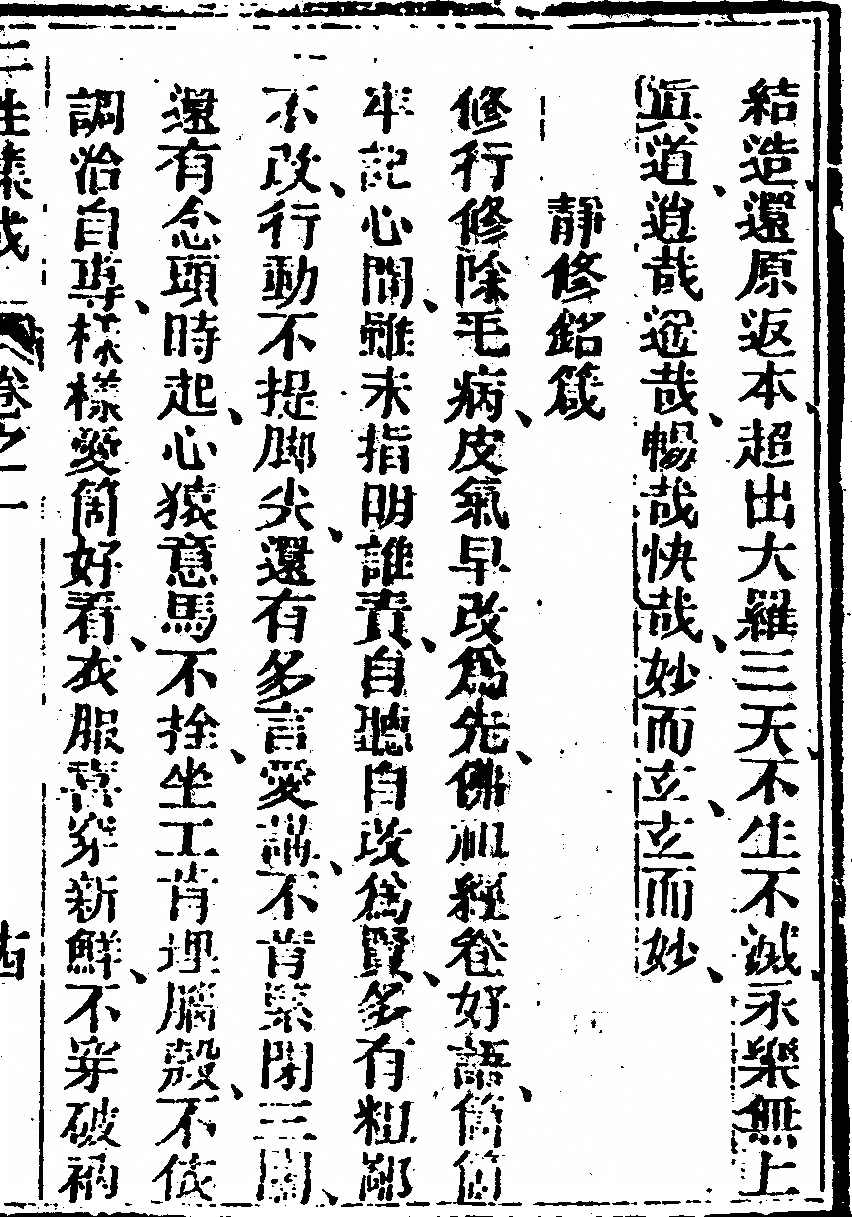 結造還原返本超出大羅三天不生不滅永樂無上
眞道逍哉遥哉暢哉快哉妙而玄玄而妙
靜修銘箴
修行修除毛病皮氣早改爲先佛祖經卷好語箇箇
牢記心間雖未指明誰責自聽自改爲賢多有粗鄙
不改行動不提脚尖還有多言愛講不肯緊閉三關
還有念頭時起心猿意馬不拴坐工肯埋腦殼不依
調治自專樣樣愛箇好看衣服喜穿新鮮不穿破衲
三性集成 卷之一